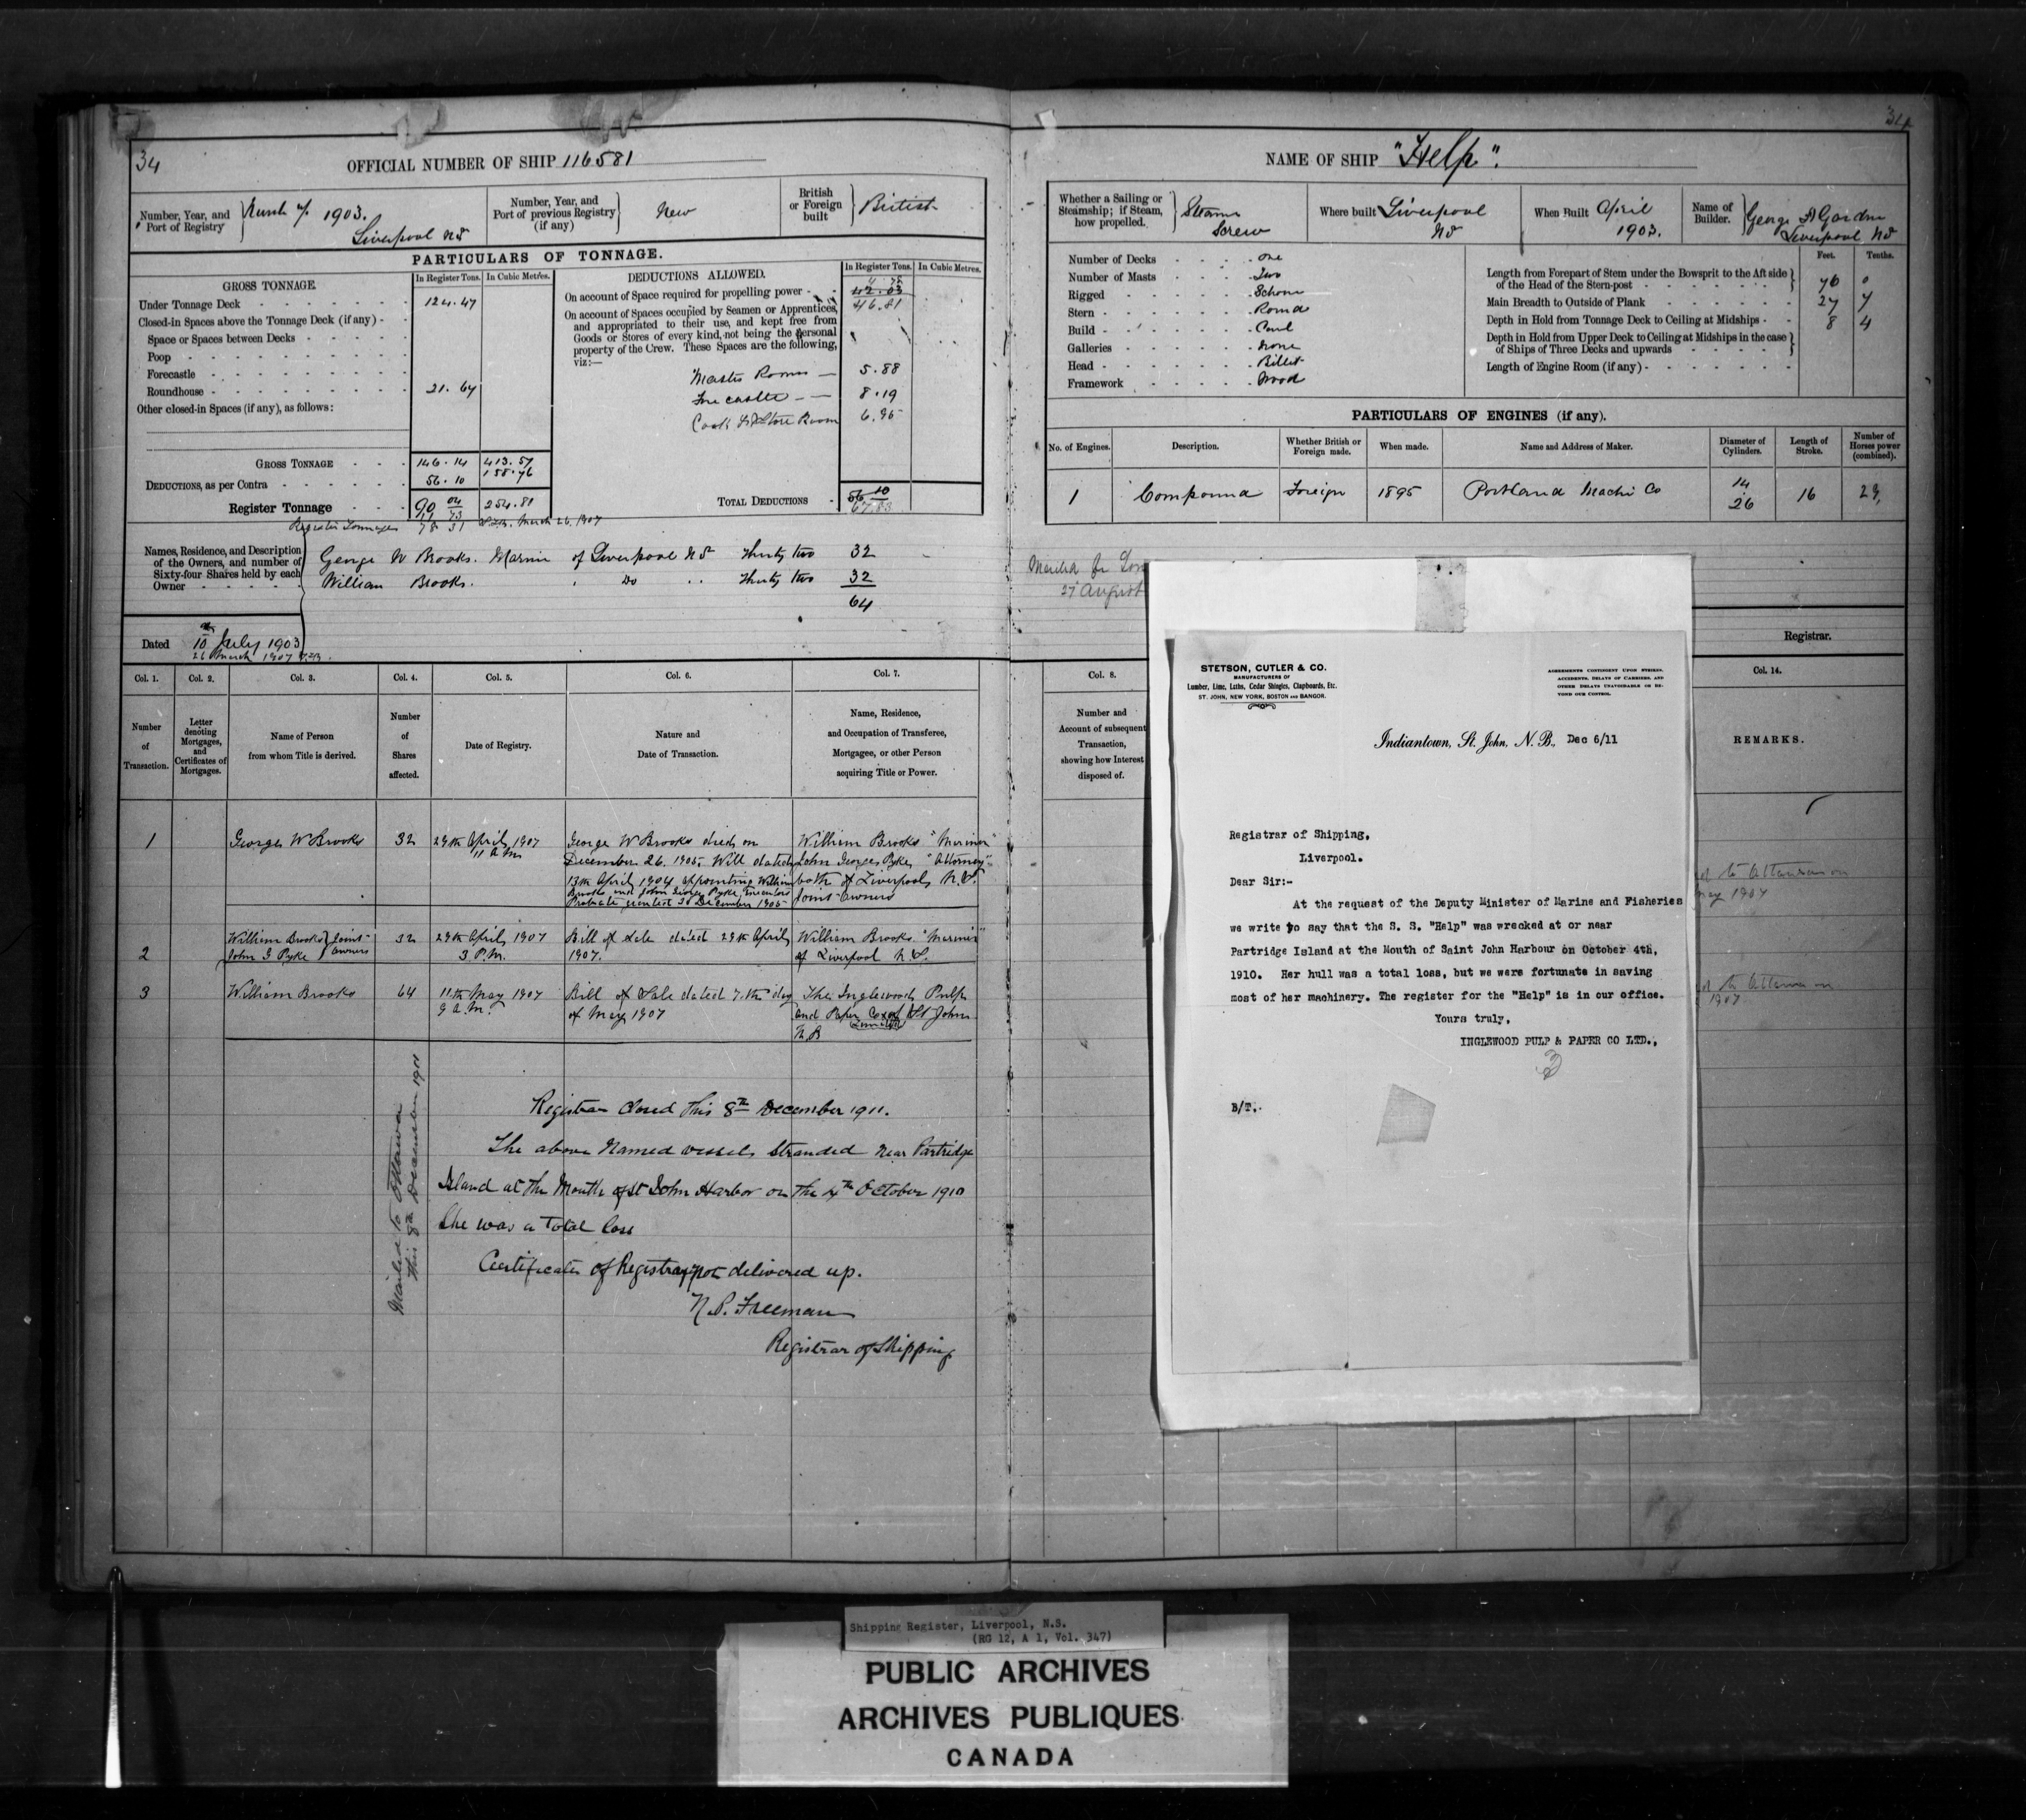 34
OFFICIAL NUMBER OF SHIP 116581
Number, Year, and
Port of Registry
1903.
Liverpool NS
Number, Year, and
Port of previous Registry
(if any)
New
British
or Foreign
built
British
PARTICULARS OF TONNAGE.
GROSS TONNAGE.
In Register Tons.
In Cubic Metres.
DEDUCTIONS ALLOWED.
In Register Tons.
In Cubic Metres.
Under Tonnage Deck 124.47
Closed-in Spaces above the Tonnage Deck (if any)
Space or Spaces between Decks
Poop
Forecastle
Roundhouse 21.67
Other closed-in Spaces (if any), as follows:
GROSS TONNAGE 146.14 413.57
DEDUCTIONS, as per Contra 56.10 158.76
Register Tonnage 90 04 254.81
Register Tonnages 78 31 March 26, 1907
On account of Space required for propelling power
46.81
On account of Spaces occupied by Seamen or Apprentices,
and appropriated to their use, and kept free from
Goods or Stores of every kind, not being the personal
property of the Crew. These Spaces are the following,
viz:—
Master Rooms — 5.88
Forecastle — 8.19
Cook & Store Room 6.95
TOTAL DEDUCTIONS 56 10
67.83
Names, Residence, and Description
of the Owners, and number of
Sixty-four Shares held by each
Owner
George W Brooks. Marine of Liverpool NS Thirty two 32
William Brooks. Do Thirty two 32
64
Dated 10 July 1903
26 March 1907
Col. 1. Col. 2. Col. 3. Col. 4. Col. 5. Col. 6. Col. 7.
Number
of
Transaction.
Letter
denoting
Mortgages,
and
Certificates of
Mortgages.
Name of Person
from whom Title is derived.
Number
of
Shares
affected.
Date of Registry.
Nature and
Date of Transaction.
Name, Residence,
and Occupation of Transferee,
Mortgagee, or other Person
acquiring Title or Power.
1
George W Brooks
32
29th April, 1907
11 A.M.
George W Brooks died on
December 26. 1905. Will dated
13th April 1904 appointing William
Brooks and John George Pyke, Executors
Probate granted 30 December 1905
William Brooks "Meriner"
John George Pyke, "Attorney"
both of Liverpool, N.S.
Joint owners
2
William Brooks } Joint-
John G Pyke } owners
32
29th April, 1907
3 P.M.
Bill of Sale dated 29th April,
1907.
William Brooks. "Meriner"
of Liverpool N.S.
3
William Brooks
64
11th May 1907
9 A.M.
Bill of Sale dated 7th day
of May 1907
The Inglewood Pulp
and Paper Co of St John
Limited
N.B
Mailed to Ottawa
this 8th December 1911
Registrar Closed This 8th December 1911.
The above Named vessel, Stranded near Partridge
Island at the Mouth of St John Harbor on the 4th October 1910
She was a Total Loss
Certificate of Registray not delivered up.
N.P. Freeman
Registrar of Shipping
34
NAME OF SHIP "Help".
Whether a Sailing or
Steamship; if Steam,
how propelled.
Steam
Screw
Where built
Liverpool
NS
When Built
April
1903.
Name of
Builder.
George A Gardner
Liverpool NS
Number of Decks One
Number of Masts Two
Rigged Schone
Stern Round
Build Carvl
Galleries None
Head Billet
Framework Wood
Feet. Tenths.
Length from Forepart of Stem under the Bowsprit to the Aft side
of the Head of the Stern-post 96 0
Main Breadth to Outside of Plank 27 7
Depth in Hold from Tonnage Deck to Ceiling at Midships 8 4
Depth in Hold from Upper Deck to Ceiling at Midships in the case
of Ships of Three Decks and upwards
Length of Engine Room (if any)
PARTICULARS OF ENGINES (if any).
No. of Engines.
Description.
Whether British or
Foreign made.
When made.
Name and Address of Maker.
Diameter of
Cylinders.
Length of
Stroke.
Number of
Horses power
(combined).
1 Compound Foreign 1895 Portland Machi Co 14 26 16 29,
27 August
Registrar.
Col. 8.
Col. 14.
Number and
Account of subsequent
Transaction,
showing how Interest
disposed of.
REMARKS.
to Ottawa on
May 1907
to Ottawa on
1907
STETSON, CUTLER & CO.
MANUFACTURERS OF
Lumber, Lime, Laths, Cedar Shingles, Clapboards, Etc.
ST. JOHN, NEW YORK, BOSTON AND BANGOR.
AGREEMENTS CONTINGENT UPON STRIKES,
ACCIDENTS, DELAYS OF CARRIERS, AND
OTHER DELAYS UNAVOIDABLE OR BE-
YOND OUR CONTROL.
Indiantown, St. John, N. B., Dec 6/11
Registrar of Shipping,
Liverpool.
Dear Sir:-
At the request of the Deputy Minister of Marine and Fisheries
we write to say that the S. S. "Help" was wrecked at or near
Partridge Island at the Mouth of Saint John Harbour on October 4th,
1910. Her hull was a total loss, but we were fortunate in saving
most of her machinery. The register for the "Help" is in our office.
Yours truly,
INGLEWOOD PULP & PAPER CO LTD.,
B/T.
Shipping Register, Liverpool, N.S.
(RG 12, A 1, Vol. 347)
PUBLIC ARCHIVES
ARCHIVES PUBLIQUES
CANADA